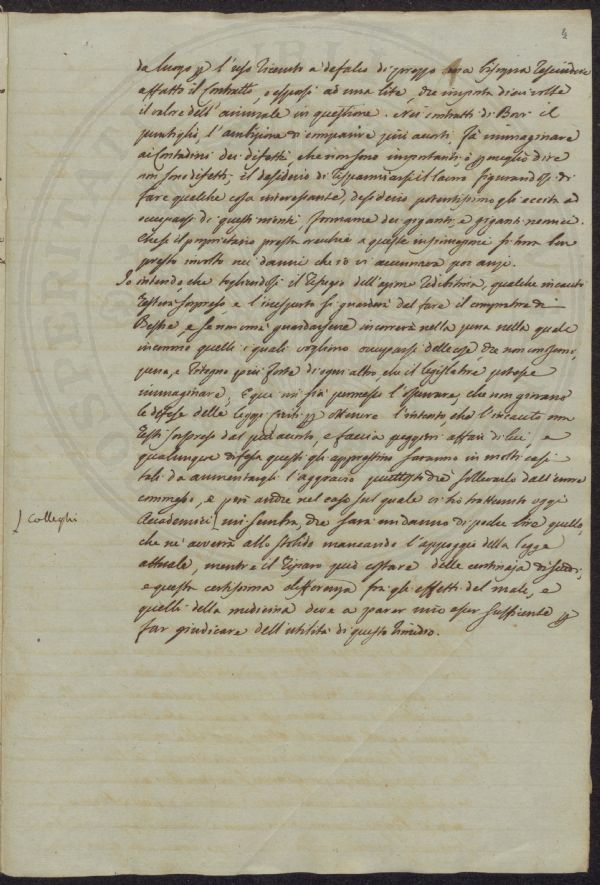 4
da luogo p l'uso vicenti a defalco di prezzo ma bisogna rescindere
affatto il contratto, o esporsi ad una lite, che importa dieci volte
il valore dell'animale in questione. Nei contratti di Bovi il
puntiglio, l'ambizione di comparire più accorti fà immaginare
ai Contadini dei difetti, che non sono importanti, o p meglio dire
non sono difetti, il desiderio di risparmiarsi il lavoro figurandosi di
fare qualche cosa interessante, desiderio potentissimo gli eccita ad
occuparsi di questi nienti, formarne dei giganti, e giganti nemici.
Che se il proprietario presta orecchie a queste insinuazioni si trova ben
presto involto nei danni che io vi accennava poc'anzi.
Io intendo, che togliendosi il ripiego dell'azione redibitoria, qualche incauto
resterà sorpreso, e l'inesperto si guarderà dal fare il compratore di
Bestie, e se non vorrà guardarsene incorrerà nella pena nella quale
incorrono quelli i quali vogliono occuparsi delle cose che non conoscono,
pena, e ritegno più forte di ogni altro, che il legislatore potesse
immaginare; E qui mi sia permesso l'osservare, che non giovano
le difese delle leggi scritte p ottenere l'intento, che l'incauto non
resti sorpreso dal più accorto, e faccia peggiori affari di lui, e
qualunque difesa questi gli apprestino saranno in molti casi
tali da aumentargli l'aggravio piuttosto che sollevarlo dall'errore
commesso, e però anche nel caso sul quale vi ho trattenuti oggi
Accademici mi sembra, che sarà un danno di poche lire quello,
⌡ Colleghi
che ne avverrà allo stolido mancando l'appoggio della legge
attuale, mentre il riparo può costare delle centinaja di scudi;
e questa certissima differenza fra gli effetti del male, e
quelli della medicina deve a parer mio esser sufficiente p
far giudicare dell'utilità di questo rimedio.